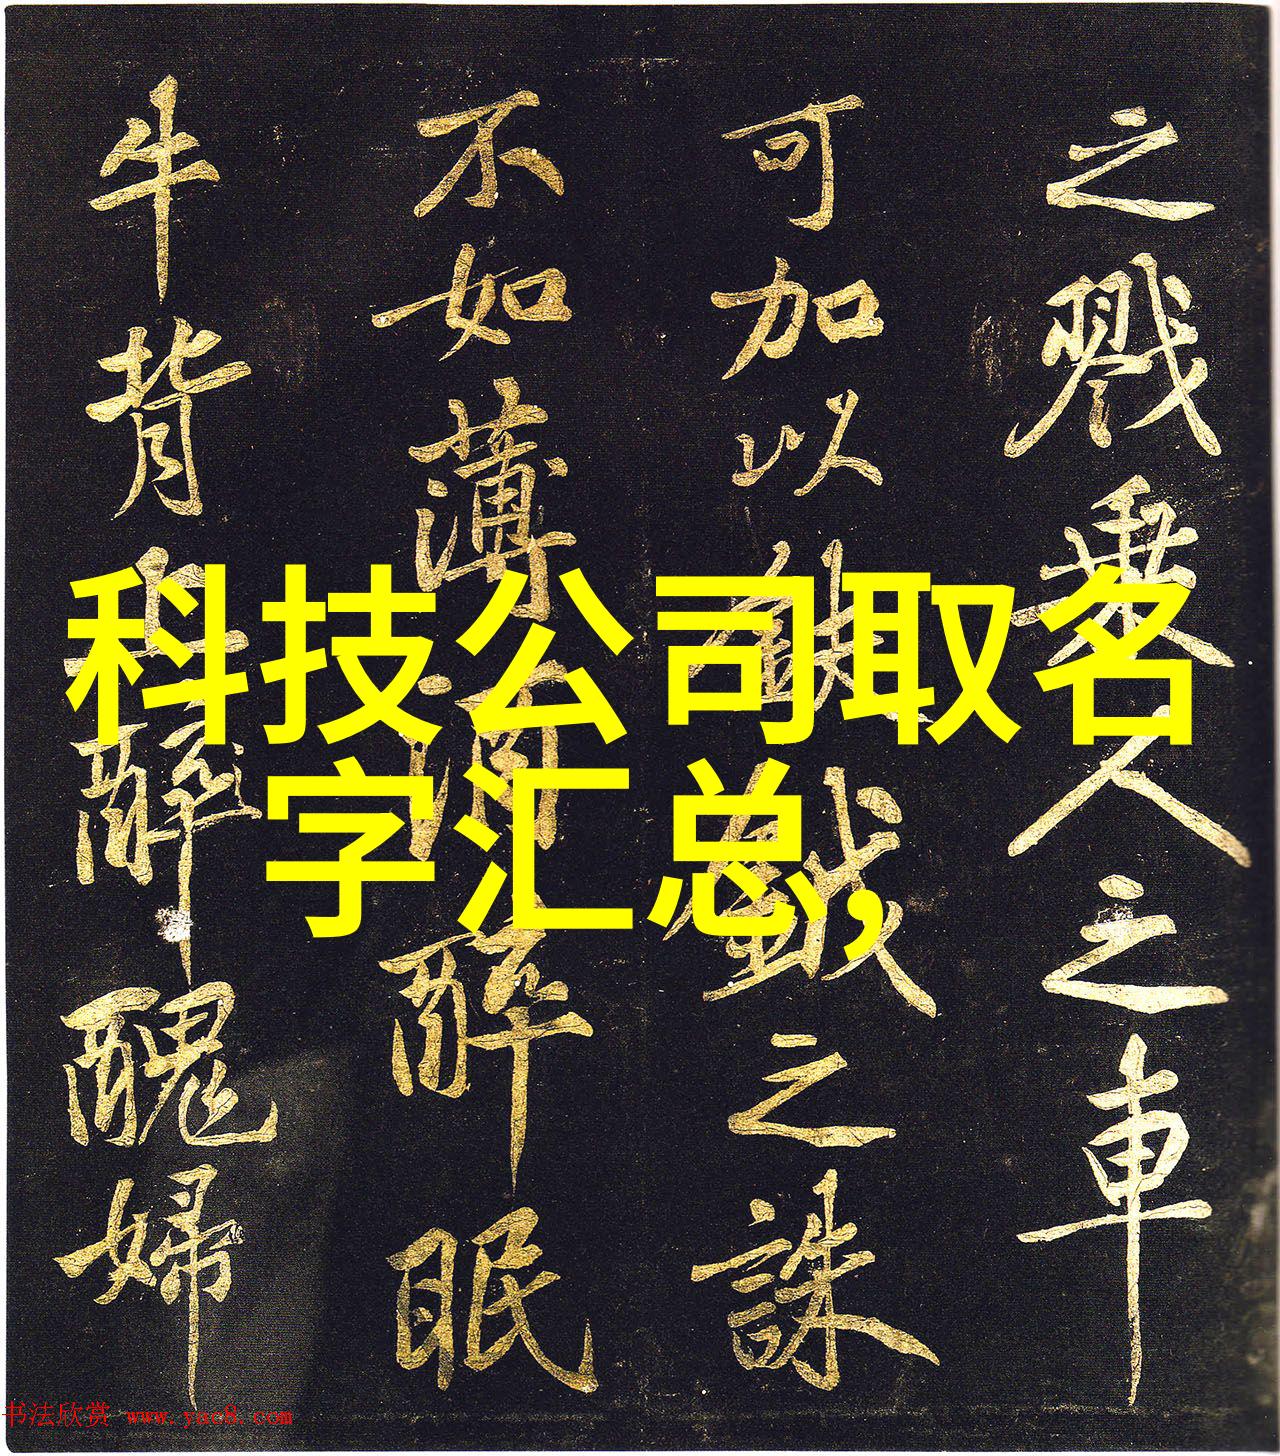 科技公司取名
字汇总,
之戮乘人之車
可加以鉞之誅
不如薄酒醉眠
牛背上醉醜婦
书法欣赏 www.yac8.com